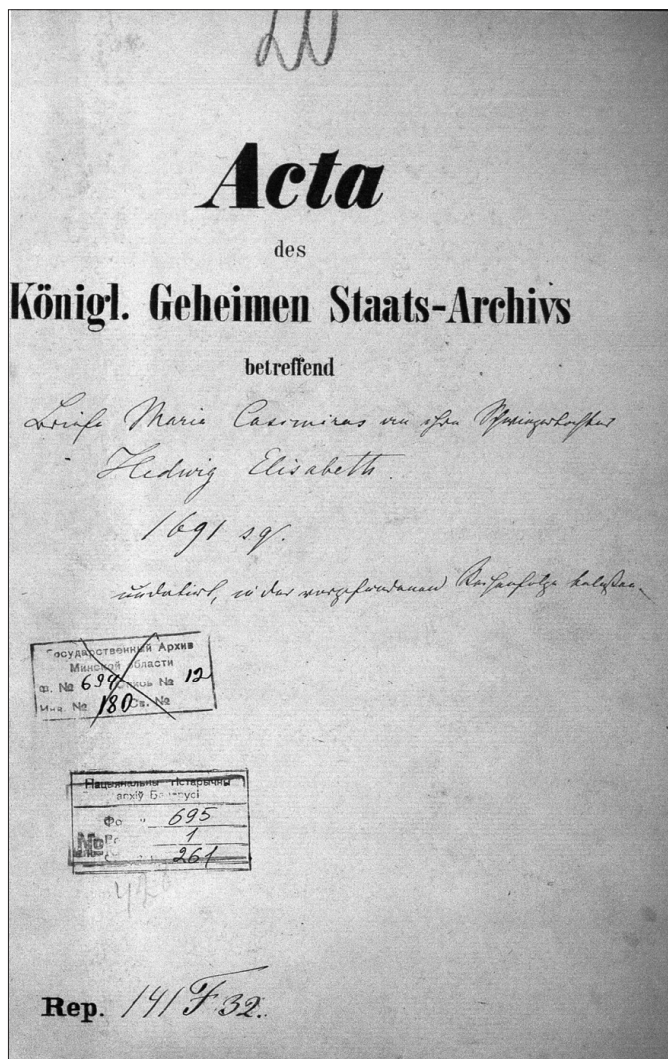 20
Acta
des
Königl. Geheimen Staats-Archivs
betreffend
Briefe Marie Casimiras an ihre Schwiegertochter
Hedwig Elisabeth.
1691 sq.
undatirt, in der vorgefundenen Reihenfolge belassen.
Государственный Архив
Минской области
Ф. № 694 Опись № 12
Инв. № 180 Св. №
Нацыянальны гістарычны
архіў Беларусі
695
1
№ 261
Rep. 141 F 32.